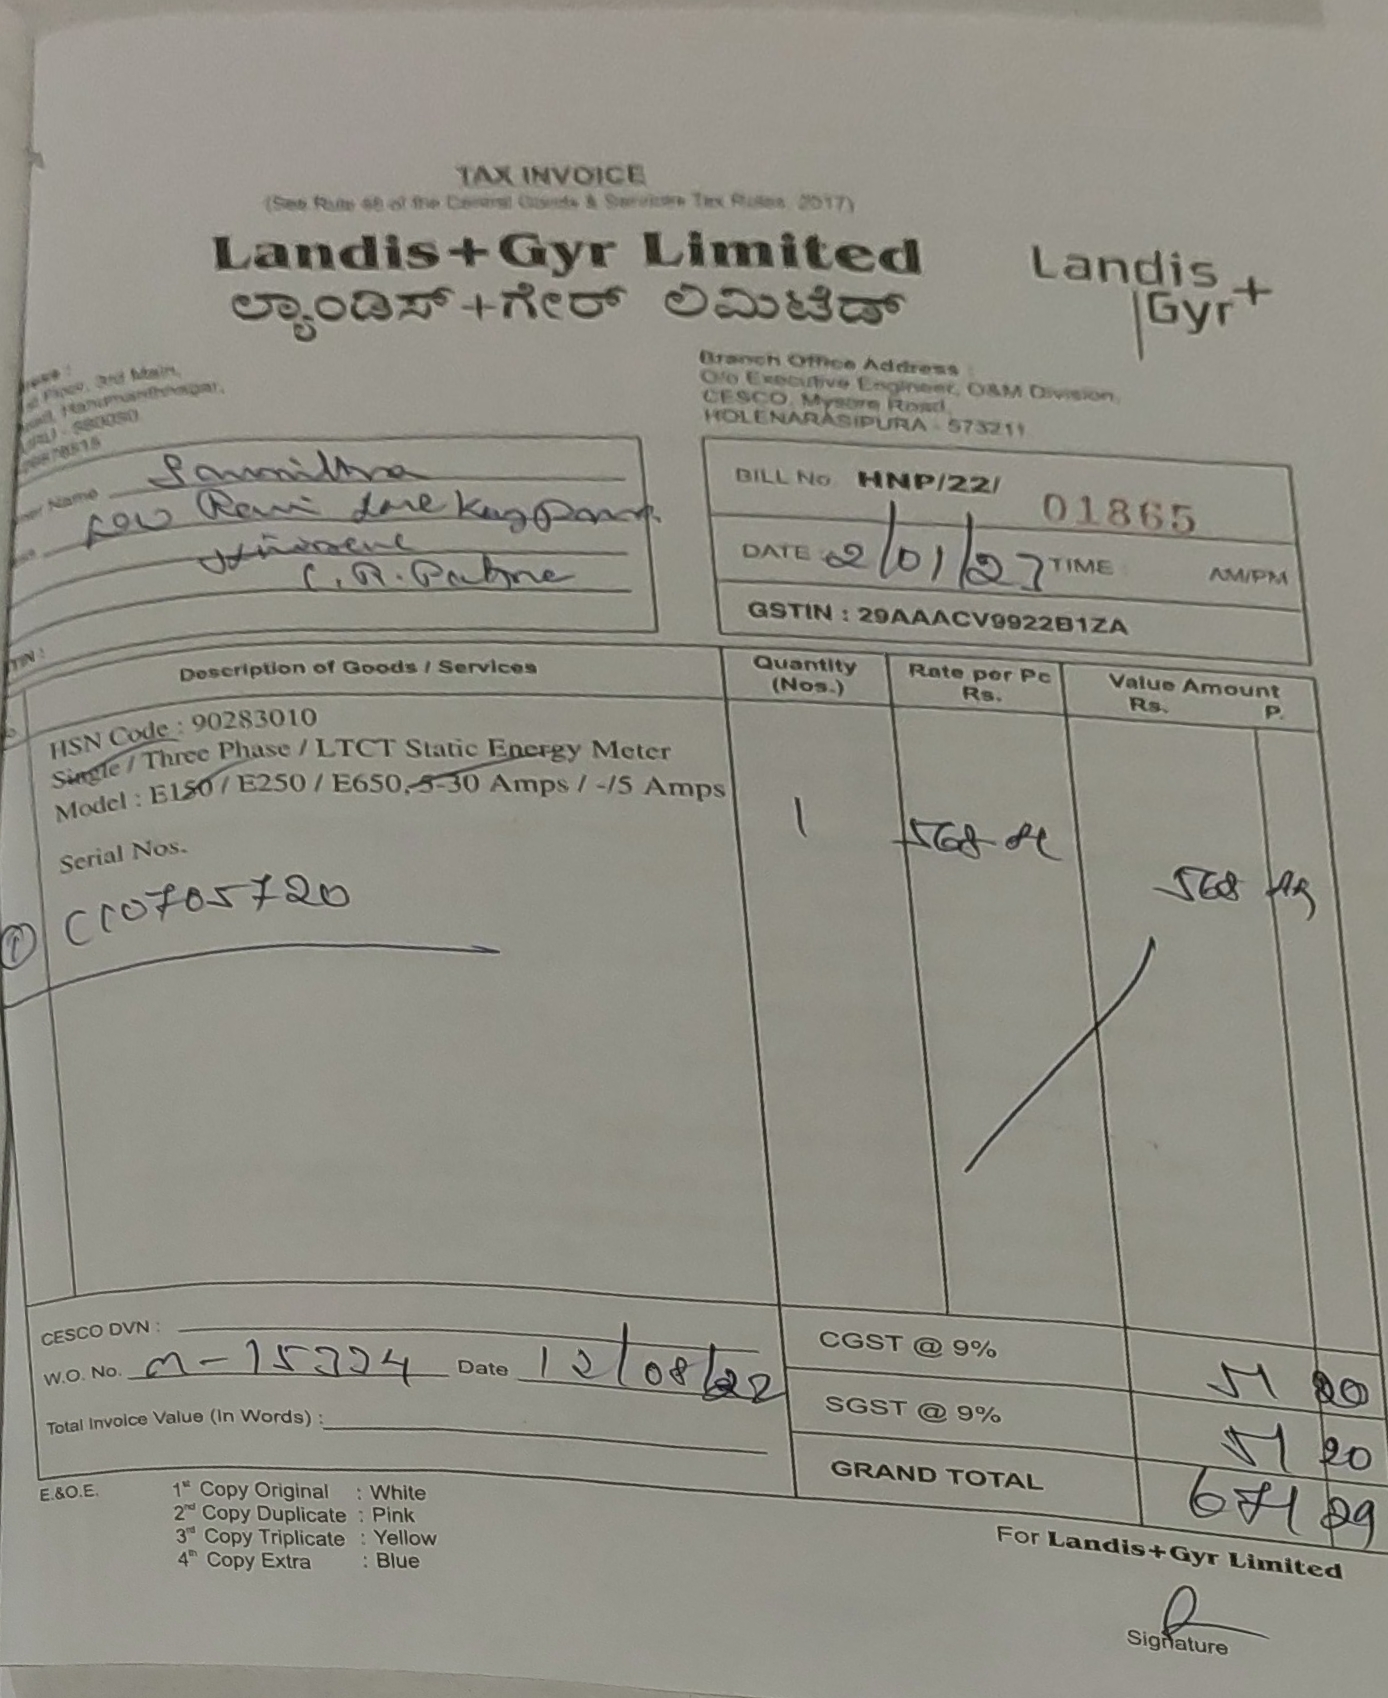 TAX INVOICE
(See Rule 46 of the Central Goods & Services Tax Rules, 2017)
Landis+Gyr Limited
ಲ್ಯಾಂಡಿಸ್+ಗೇರ್ ಲಿಮಿಟೆಡ್
Landis
Gyr+
3rd Main,
Hanumanthnagar,
Branch Office Address :
O/o Executive Engineer, O&M Division,
CESCO, Mysore Road,
HOLENARASIPURA - 573211
Name
Ravi
C.R. Patna
BILL No. HNP/22/ 01865
DATE 2/01/23 TIME : AM/PM
GSTIN : 29AAACV9922B1ZA
Description of Goods / Services
Quantity
(Nos.)
Rate per Pc
Rs.
Value Amount
Rs. P.
HSN Code : 90283010
Single / Three Phase / LTCT Static Energy Meter
Model : E150 / E250 / E650, 5-30 Amps / -/5 Amps
1
568
568
Serial Nos.
① C10705720
CESCO DVN :
W.O. No. Date 12/08/22
Total Invoice Value (In Words) :
CGST @ 9% 51 20
SGST @ 9% 51 20
GRAND TOTAL 671 29
E.&O.E.
1st Copy Original : White
2nd Copy Duplicate : Pink
3rd Copy Triplicate : Yellow
4th Copy Extra : Blue
For Landis+Gyr Limited
Signature